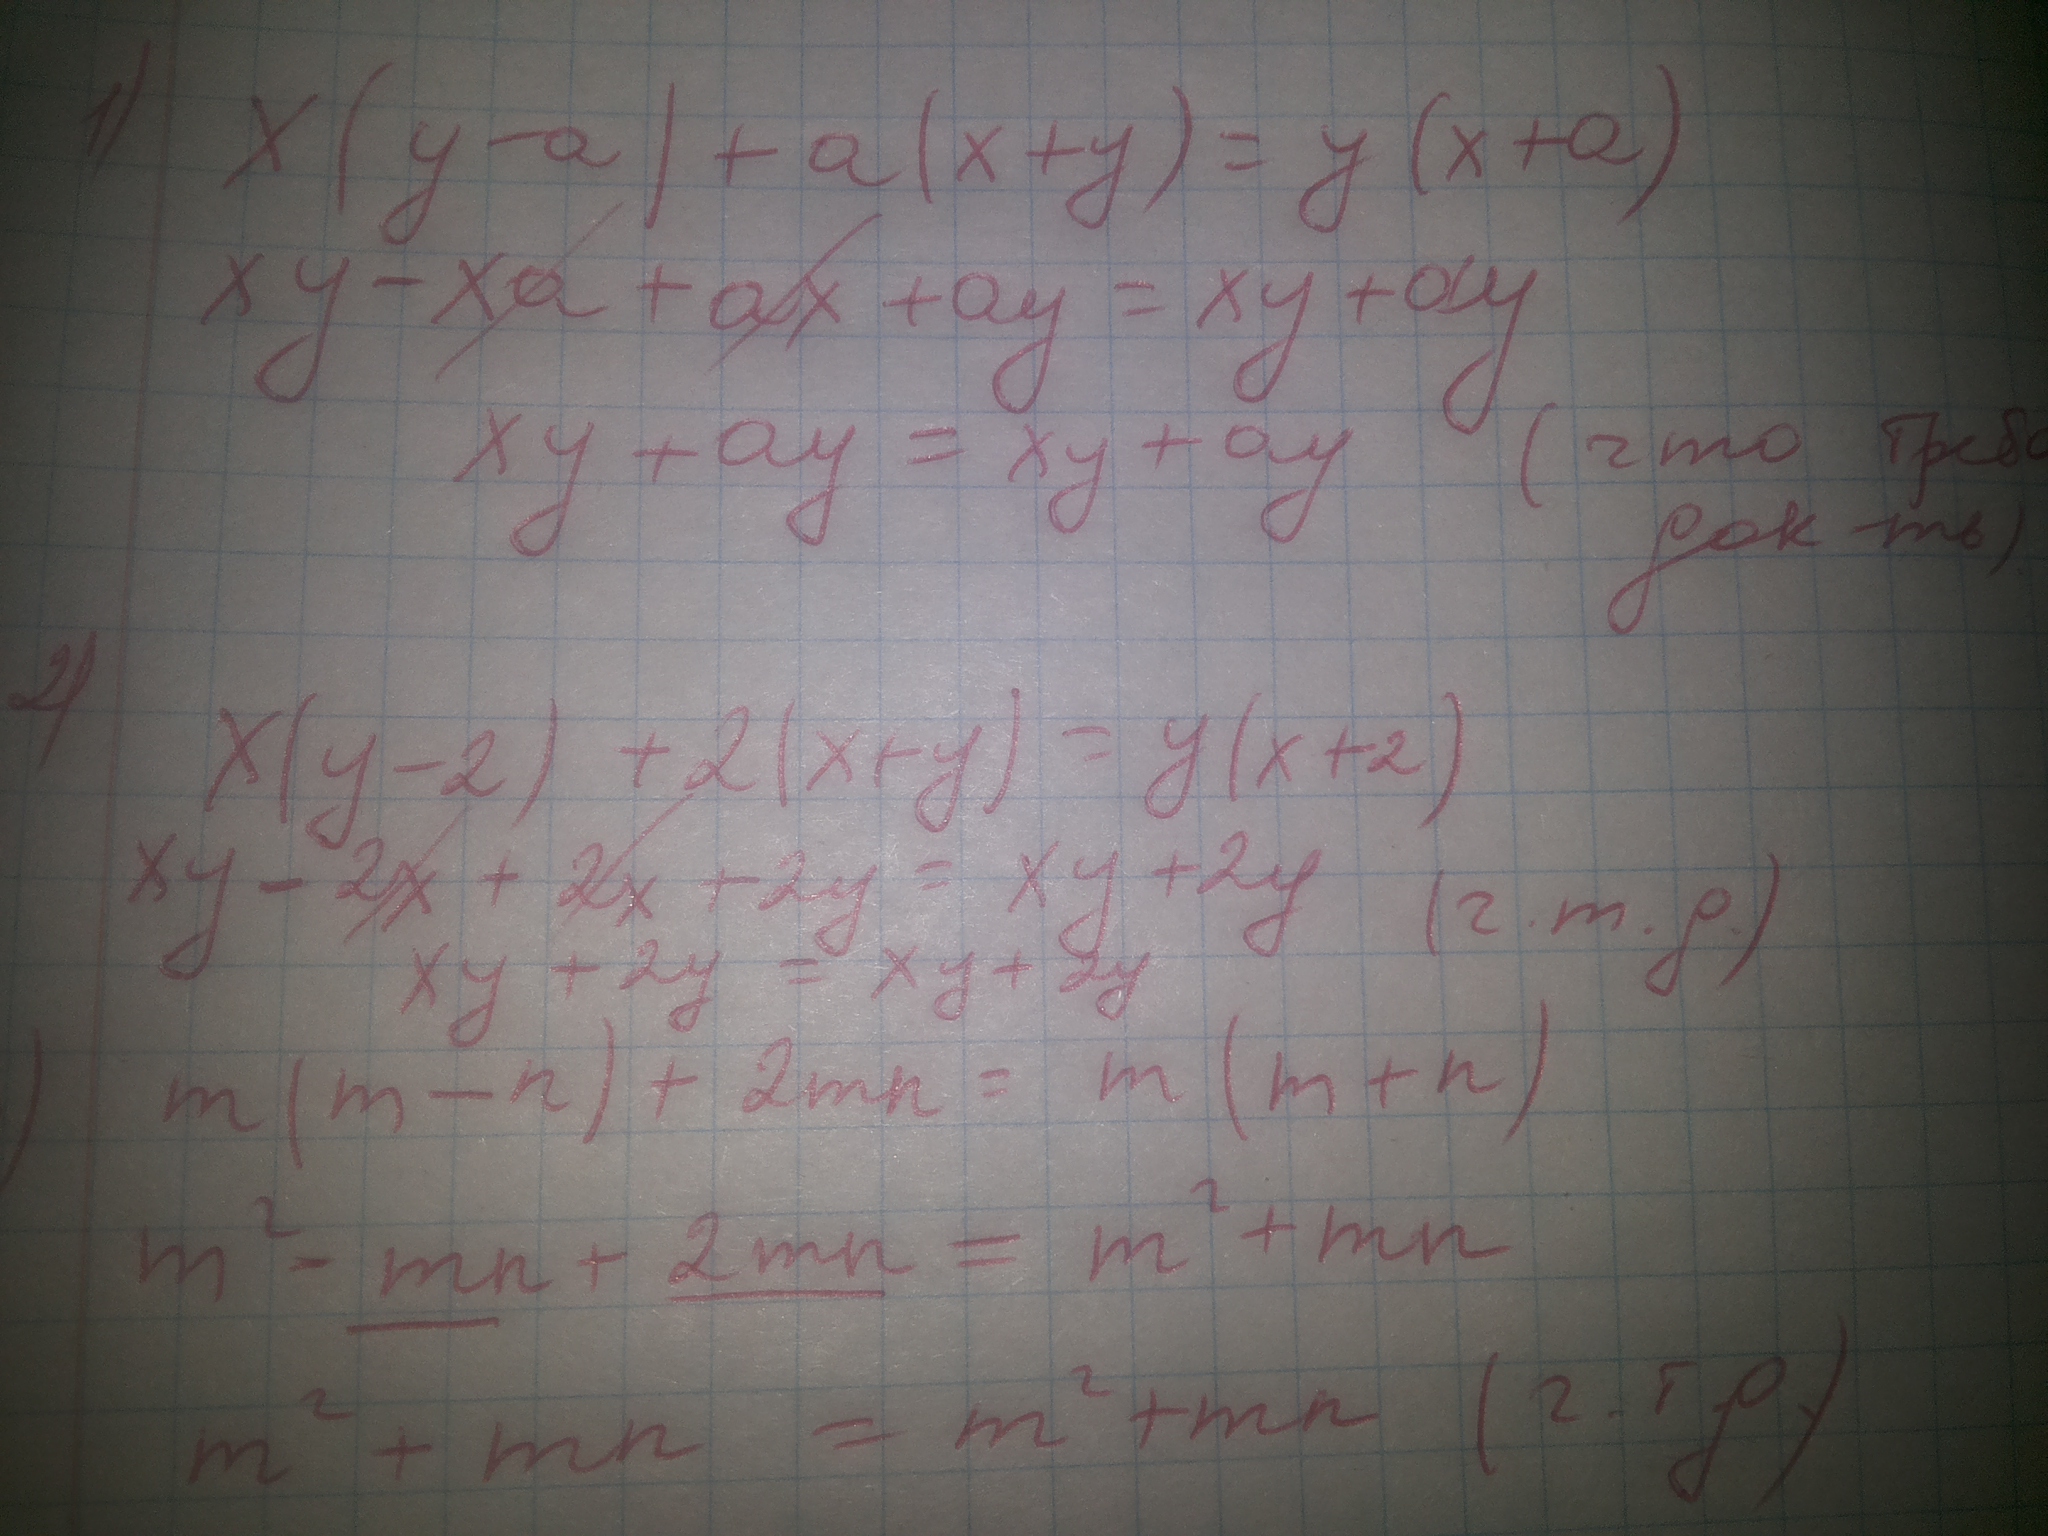 1) x(y-a)+a(x+y)=y(x+a)
xy-xa+ax+ay=xy+ay
xy+ay=xy+ay (что
док-ть)
2) x(y-2)+2(x+y)=y(x+2)
xy-2x+2x+2y=xy+2y (ч.т.д.)
xy+2y=xy+2y
) m(m-n)+2mn=m(m+n)
m²-mn+2mn=m²+mn
m²+mn=m²+mn (ч.т.д.)